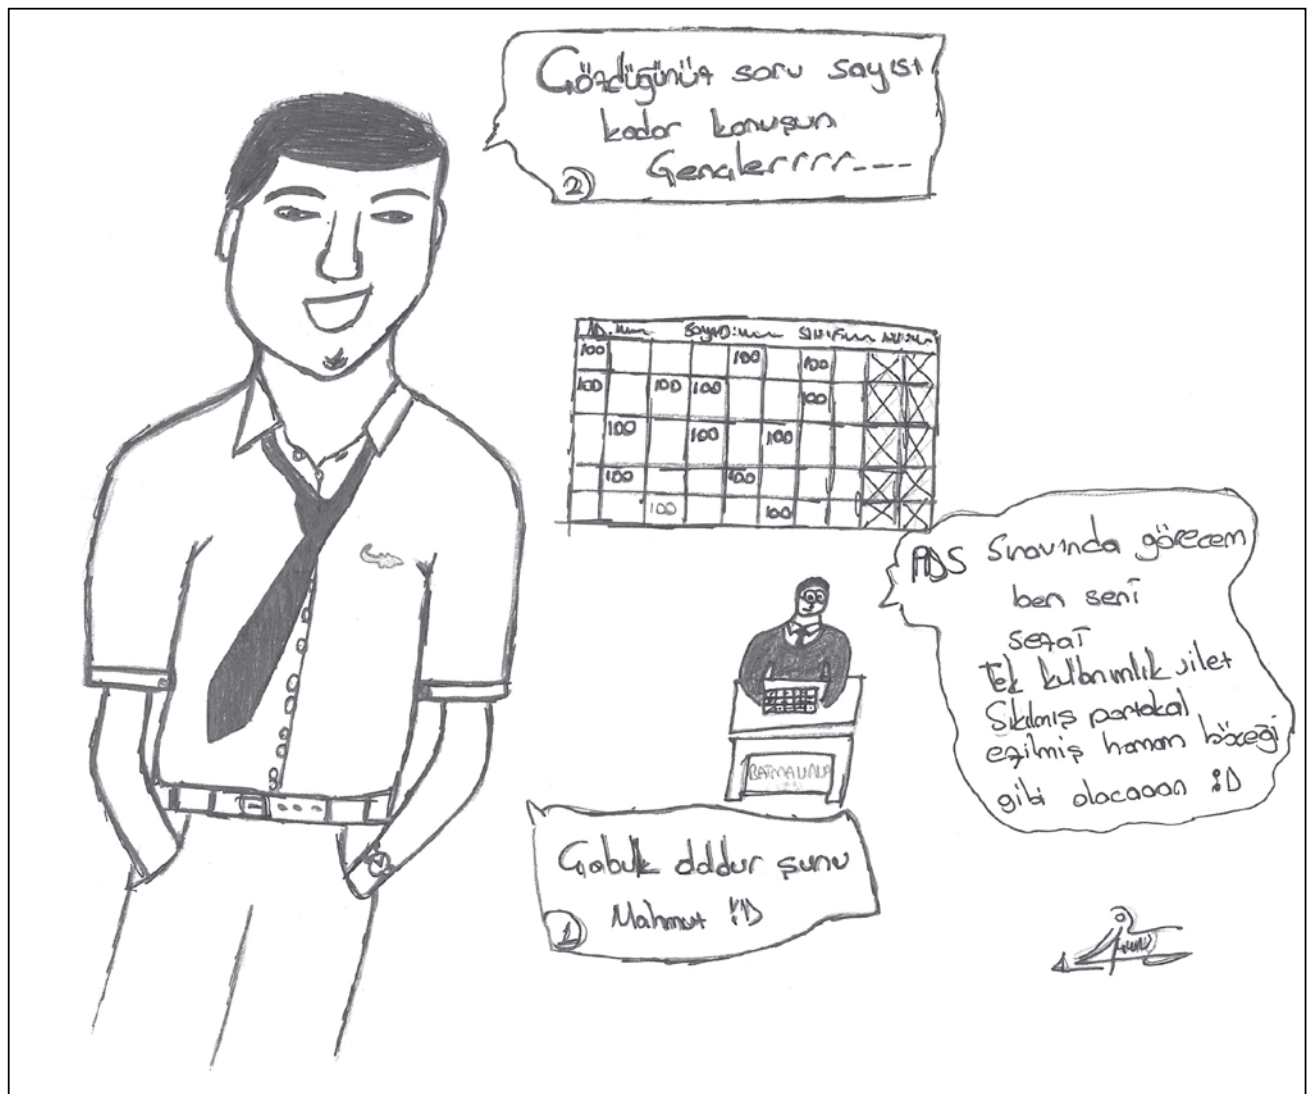 Çözdüğünüz soru sayısı
kadar konuşun
Gençlerrrr----
2
AD. SOYAD: SINIF
100 100 100
100 100 100 100
100 100 100
100 100
100 100
ABS Sınavında görecem
ben seni
sezai
Tek kullanımlık jilet
Sıkılmış portakal
ezilmiş hamam böceği
gibi olacaaan :D
BATMAUNA
Çabuk doldur şunu
Mahmut :D
1